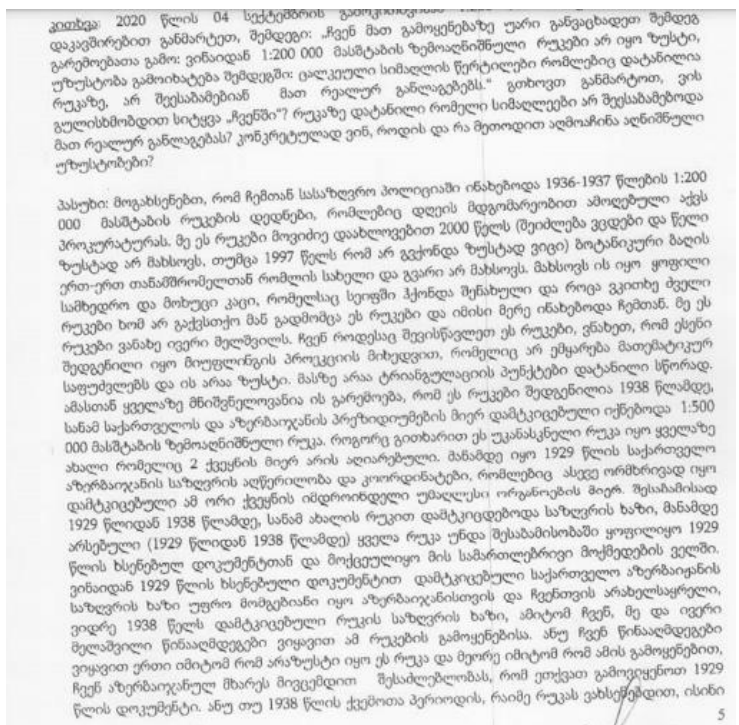 კითხვა: 2020 წლის 04 სექტემბრის გამოკითხვისას
დაკავშირებით განმარტეთ, შემდეგი: „ჩვენ მათ გამოყენებაზე უარი განვაცხადეთ შემდეგ
გარემოებათა გამო: ვინაიდან 1:200 000 მასშტაბის ზემოაღნიშნული რუკები არ იყო ზუსტი,
უზუსტობა გამოიხატება შემდეგში: ცალკეული სიმაღლის წერტილები რომლებიც დატანილია
რუკაზე, არ შეესაბამებიან მათ რეალურ განლაგებებს.“ გთხოვთ განმარტოთ, ვის
გულისხმობდით სიტყვა „ჩვენში“? რუკაზე დატანილი რომელი სიმაღლეები არ შეესაბამებოდა
მათ რეალურ განლაგებას? კონკრეტულად ვინ, როდის და რა მეთოდით აღმოაჩინა აღნიშნული
უზუსტობები?
პასუხი: მოგახსენებთ, რომ ჩემთან სასაზღვრო პოლიციაში ინახებოდა 1936-1937 წლების 1:200
000 მასშტაბის რუკების დედნები, რომლებიც დღეის მდგომარეობით ამოღებული აქვს
პროკურატურას. მე ეს რუკები მოვიძიე დაახლოვებით 2000 წელს (შეიძლება ვცდები და წელი
ზუსტად არ მახსოვს, თუმცა 1997 წელს რომ არ გვქონდა ზუსტად ვიცი) ბოტანიკური ბაღის
ერთ-ერთ თანამშრომელთან რომლის სახელი და გვარი არ მახსოვს. მახსოვს ის იყო ყოფილი
სამხედრო და მოხუცი კაცი, რომელსაც სეიფში ჰქონდა შენახული და როცა ვკითხე ძველი
რუკები ხომ არ გაქვსთქო მან გადმომცა ეს რუკები და იმისი მერე ინახებოდა ჩემთან. მე ეს
რუკები ვანახე ივერი მელშვილს. ჩვენ როდესაც შევისწავლეთ ეს რუკები, ვნახეთ, რომ ესენი
შედგენილი იყო მიუფლინგის პროექციის მიხედვით, რომელიც არ ემყარება მათემატიკურ
საფუძვლებს და ის არაა ზუსტი. მასზე არაა ტრიანგულაციის პუნქტები დატანილი სწორად.
ამასთან ყველაზე მნიშვნელოვანია ის გარემოება, რომ ეს რუკები შედგენილია 1938 წლამდე,
სანამ საქართველოს და აზერბაიჯანის პრეზიდიუმების მიერ დამტკიცებული იქნებოდა 1:500
000 მასშტაბის ზემოაღნიშნული რუკა. როგორც გითხარით ეს უკანასკნელი რუკა იყო ყველაზე
ახალი რომელიც 2 ქვეყნის მიერ არის აღიარებული. მანამდე იყო 1929 წლის საქართველო
აზერბაიჯანის საზღვრის აღწერილობა და კოორდინატები, რომლებიც ასევე ორმხრივად იყო
დამტკიცებული ამ ორი ქვეყნის იმდროინდელი უმაღლესი ორგანოების მიერ. შესაბამისად
1929 წლიდან 1938 წლამდე, სანამ ახალის რუკით დამტკიცდებოდა საზღვრის ხაზი, მანამდე
არსებული (1929 წლიდან 1938 წლამდე) ყველა რუკა უნდა შესაბამისობაში ყოფილიყო 1929
წლის ხსენებულ დოკუმენტთან და მოქცეულიყო მის სამართლებრივი მოქმედების ველში.
ვინაიდან 1929 წლის ხსენებული დოკუმენტით დამტკიცებული საქართველო აზერბაიჟანის
საზღვრის ხაზი უფრო მომგებიანი იყო აზერბაიჯანისთვის და ჩვენთვის არახელსაყრელი,
ვიდრე 1938 წელს დამტკიცებული რუკის საზღვრის ხაზი, ამიტომ ჩვენ, მე და ივერი
მელაშვილი წინააღმდეგები ვიყავით ამ რუკების გამოყენებისა. ანუ ჩვენ წინააღმდეგები
ვიყავით ერთი იმიტომ რომ არაზუსტი იყო ეს რუკა და მეორე იმიტომ რომ ამის გამოყენებით,
ჩვენ აზერბაიჯანულ მხარეს მივცემდით შესაძლებლობას, რომ ეთქვათ გამოვიყენოთ 1929
წლის დოკუმენტი. ანუ თუ 1938 წლის ქვემოთა პერიოდის, რაიმე რუკას ვახსენებდით, ისინი
5